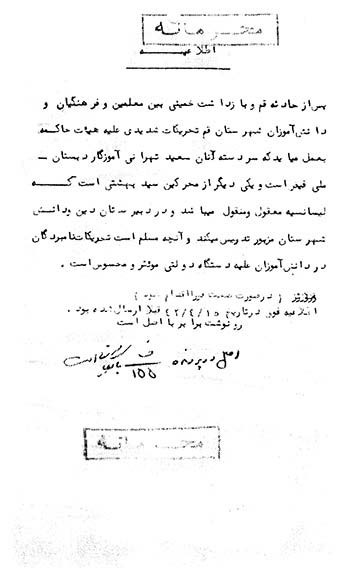 محرمانه
اطلاعیه
پس از حادثه قم و بازداشت خمینی بین معلمین و فرهنگیان و
دانش‌آموزان شهرستان قم تحریکات شدیدی علیه هیات حاکمه
بعمل میاید که سردسته آنان سعید تهرانی آموزگار دبستان –
ملی فیدر است و یکی دیگر از محرکین سید بهشتی است که
لیسانسیه معقول ومنقول میباشد و در دبیرستان دین ودانش
شهرستان مزبور تدریس میکند و آنچه مسلم است تحریکات نامبردگان
در دانش‌آموزان علیه دستگاه دولتی موثر و محسوس است.
( درصورت صحت فورا اقدام شود )
اطلاعیه فوق در تاریخ ۴۲/۴/۱۵ قبلا ارسال شده بود.
رونوشت برابر با اصل است
اصل در پرونده ف
۱۵۵
محرمانه